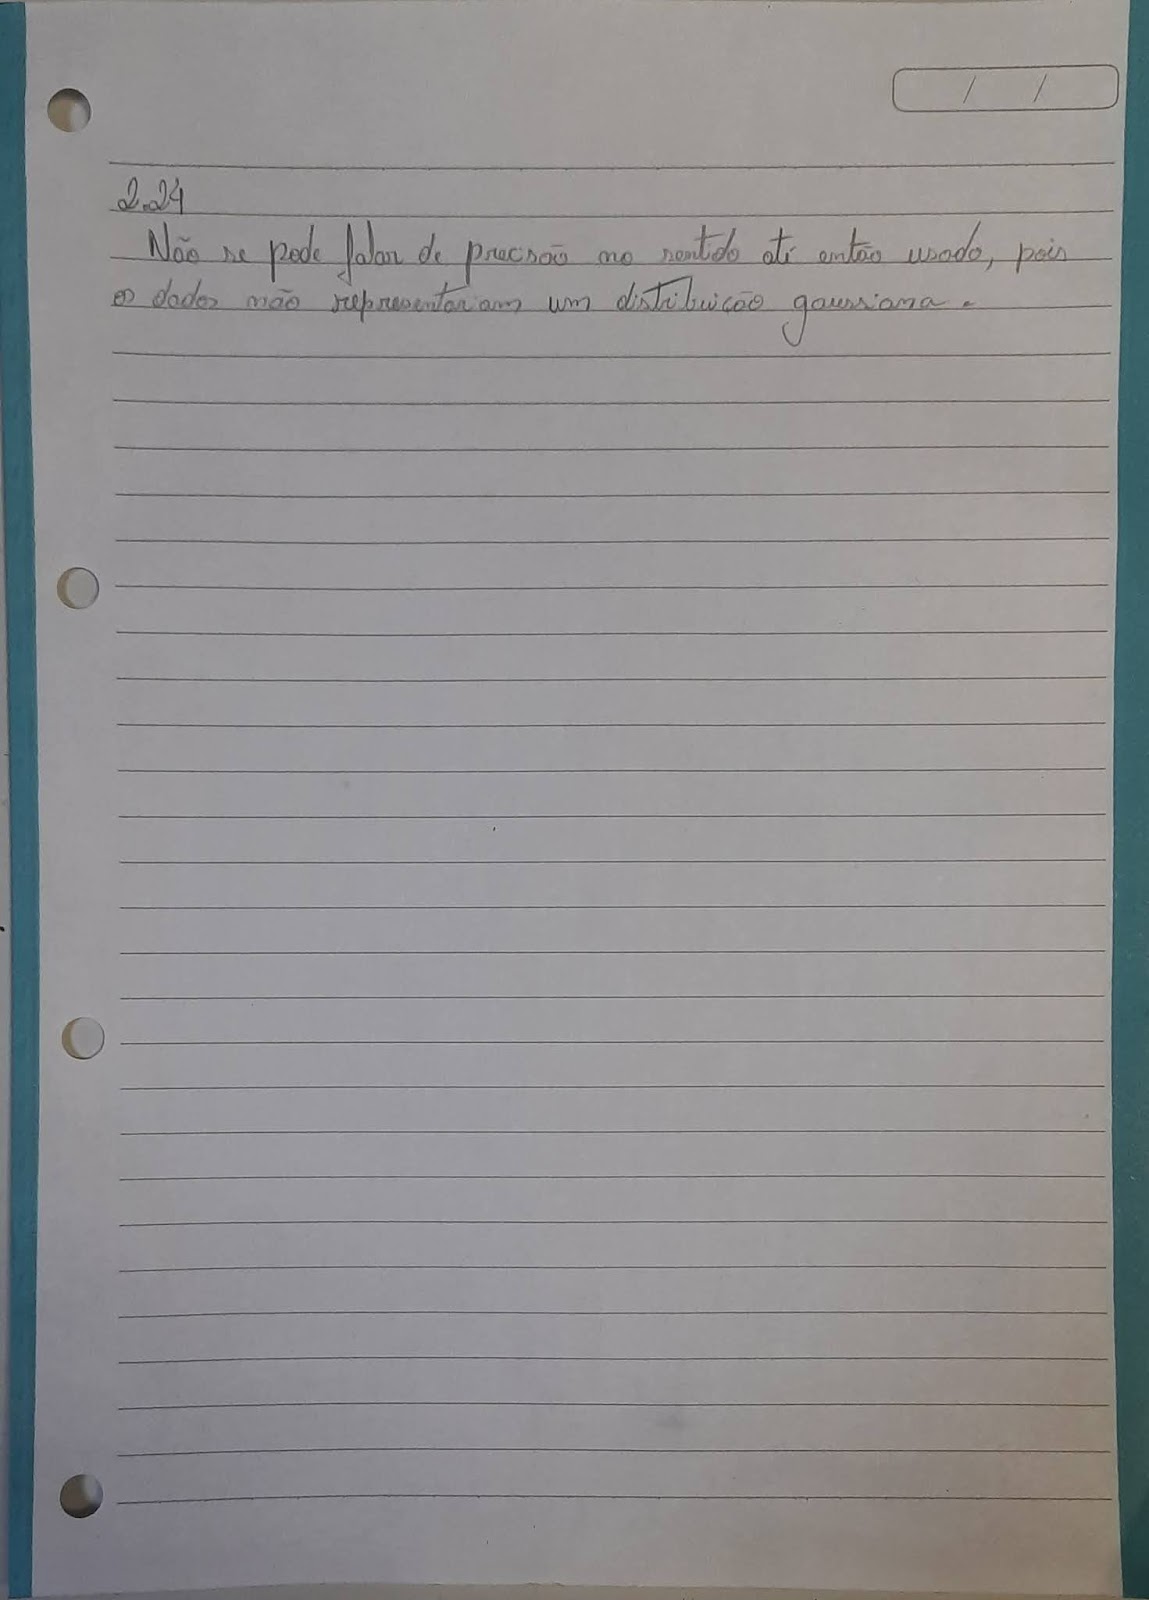 / /
2.24
Não se pode falar de precsão no sentido até então usado, pois
os dados não representariam um distribuição gaussiana.